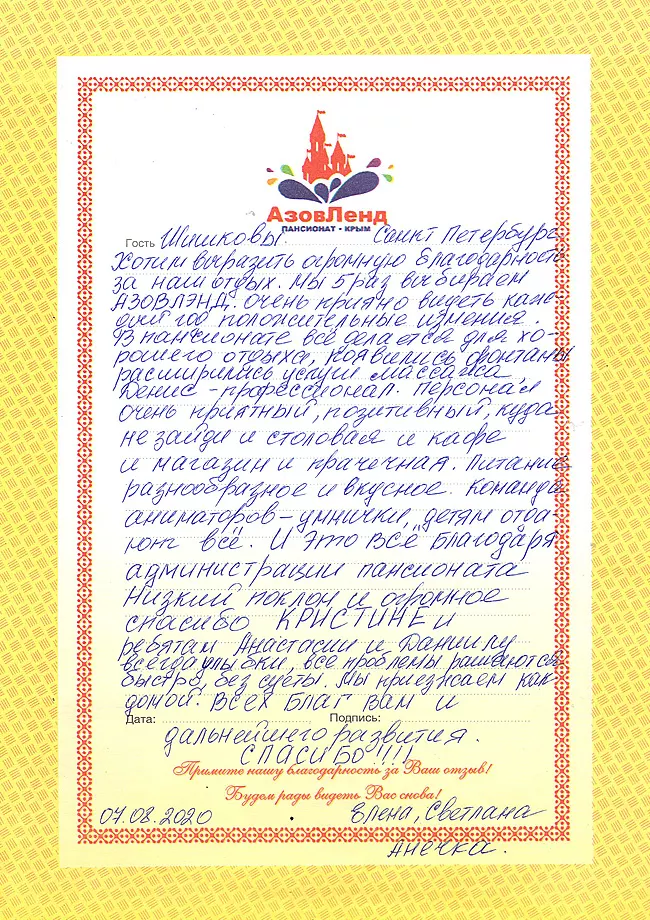 АзовЛенд
ПАНСИОНАТ - КРЫМ
Гость Шишковы. Санкт Петербург.
Хотим выразить огромную благодарность
за наш отдых. Мы 5 раз выбираем
АЗОВЛЭНД. Очень приятно видеть каж-
дый год положительные измения.
В пансионате всё делается для хо-
рошего отдыха, появились фонтаны,
расширились услуги массажа,
Денис - профессионал. Персонал
очень приятный, позитивный, куда
не зайди и столовая и кафе
и магазин и прачечная. Питание
разнообразное и вкусное. Команда
аниматоров - умнички, детям отда-
ют всё. И это всё благодаря
администрации пансионата
Низкий поклон и огромное
спасибо КРИСТИНЕ и
ребятам Анастасии и Даниилу
всегда улыбки, все проблемы решаются
быстро, без суеты. Мы приезжаем как
домой. Всех благ Вам и
Дата: Подпись:
дальнейшего развития.
СПАСИБО!!!!
Примите нашу благодарность за Ваш отзыв!
Будем рады видеть Вас снова!
07.08.2020 Елена, Светлана
Анечка.